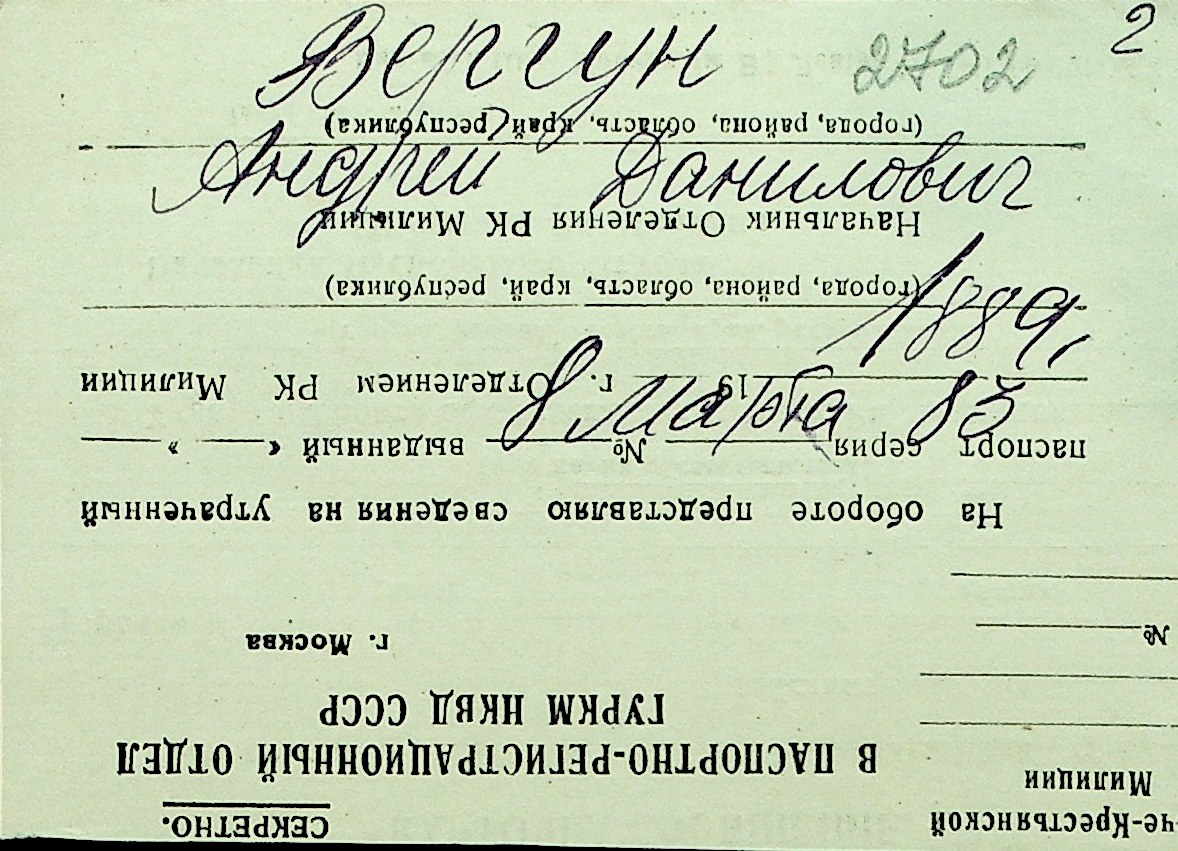 Вергун 2702 2
Андрей Данилович
1889,
8 марта 83
СЕКРЕТНО.
че-Крестьянской
Милиции
В ПАСПОРТНО-РЕГИСТРАЦИОННЫЙ ОТДЕЛ
ГУРКМ НКВД СССР
г. Москва
№
На обороте представляю сведения на утраченный
паспорт серия № выданный « »
19 г. Отделением РК Милиции
(города, района, область, край, республика)
Начальник Отделения РК Милиции
(города, района, область, край, республика)